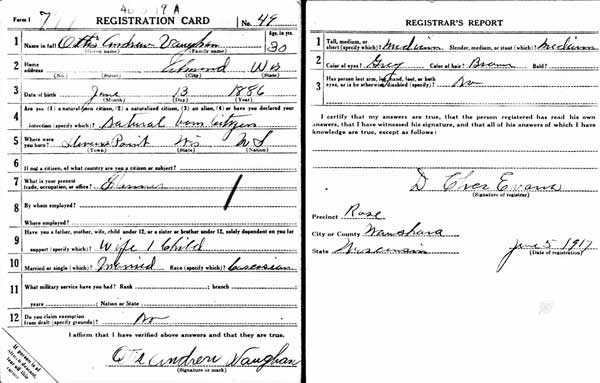 Form 1
REGISTRATION CARD
No. 49
1 Name in full Otis Andrew Vaughan Age, in yrs. 30
(Given name) (Family name)
2 Home address Wis
(No.) (Street) (City) (State)
3 Date of birth June 13 1886
(Month) (Day) (Year)
4 Are you (1) a natural-born citizen, (2) a naturalized citizen, (3) an alien, (4) or have you declared your
intention (specify which)? Natural born Citizen
5 Where were you born? Stevens Point Wis U S
(Town) (State) (Nation)
6 If not a citizen, of what country are you a citizen or subject?
7 What is your present trade, occupation, or office? Farmer
8 By whom employed?
Where employed?
9 Have you a father, mother, wife, child under 12, or a sister or brother under 12, solely dependent on you for
support (specify which)? Wife 1 Child
10 Married or single (which)? Married Race (specify which)? Caucasian
11 What military service have you had? Rank ; branch
years ; Nation or State
12 Do you claim exemption from draft (specify grounds)? No
I affirm that I have verified above answers and that they are true.
Otis Andrew Vaughan
(Signature or mark)
REGISTRAR'S REPORT
1 Tall, medium, or short (specify which)? Medium Slender, medium, or stout (which)? Medium
2 Color of eyes? Grey Color of hair? Brown Bald?
3 Has person lost arm, leg, hand, foot, or both eyes, or is he otherwise disabled (specify)? No
I certify that my answers are true, that the person registered has read his own
answers, that I have witnessed his signature, and that all of his answers of which I have
knowledge are true, except as follows:
D Evans
(Signature of registrar)
Precinct Rose
City or County Waushara
State Wisconsin
June 5 1917
(Date of registration)